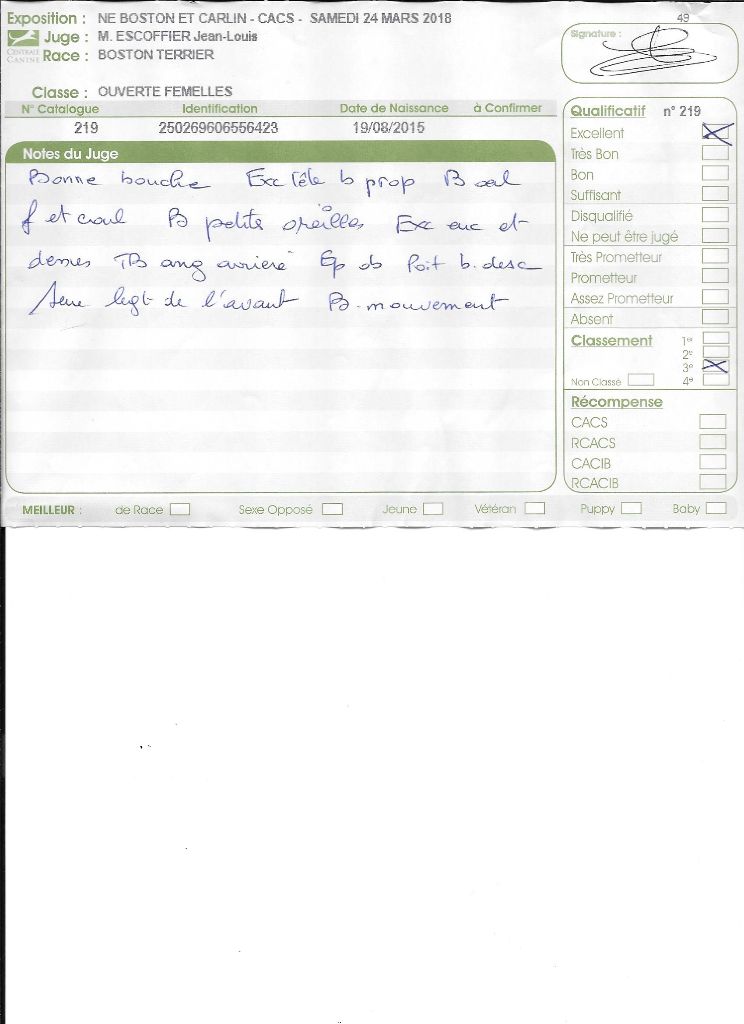 Exposition : NE BOSTON ET CARLIN - CACS - SAMEDI 24 MARS 2018
49
Juge : M. ESCOFFIER Jean-Louis
Signature :
CENTRALE CANINE
Race : BOSTON TERRIER
Classe : OUVERTE FEMELLES
N° Catalogue Identification Date de Naissance à Confirmer
219 250269606556423 19/08/2015
Notes du Juge
Bonne bouche Exc tête b prop B œil
f et coul B petites oreilles Exc enc et
dessus TB ang arrière Ep ob Poit b. desc
Sene legt de l'avant B. mouvement
Qualificatif n° 219
Excellent
Très Bon
Bon
Suffisant
Disqualifié
Ne peut être jugé
Très Prometteur
Prometteur
Assez Prometteur
Absent
Classement 1er
2e
3e
Non Classé 4e
Récompense
CACS
RCACS
CACIB
RCACIB
MEILLEUR : de Race Sexe Opposé Jeune Vétéran Puppy Baby